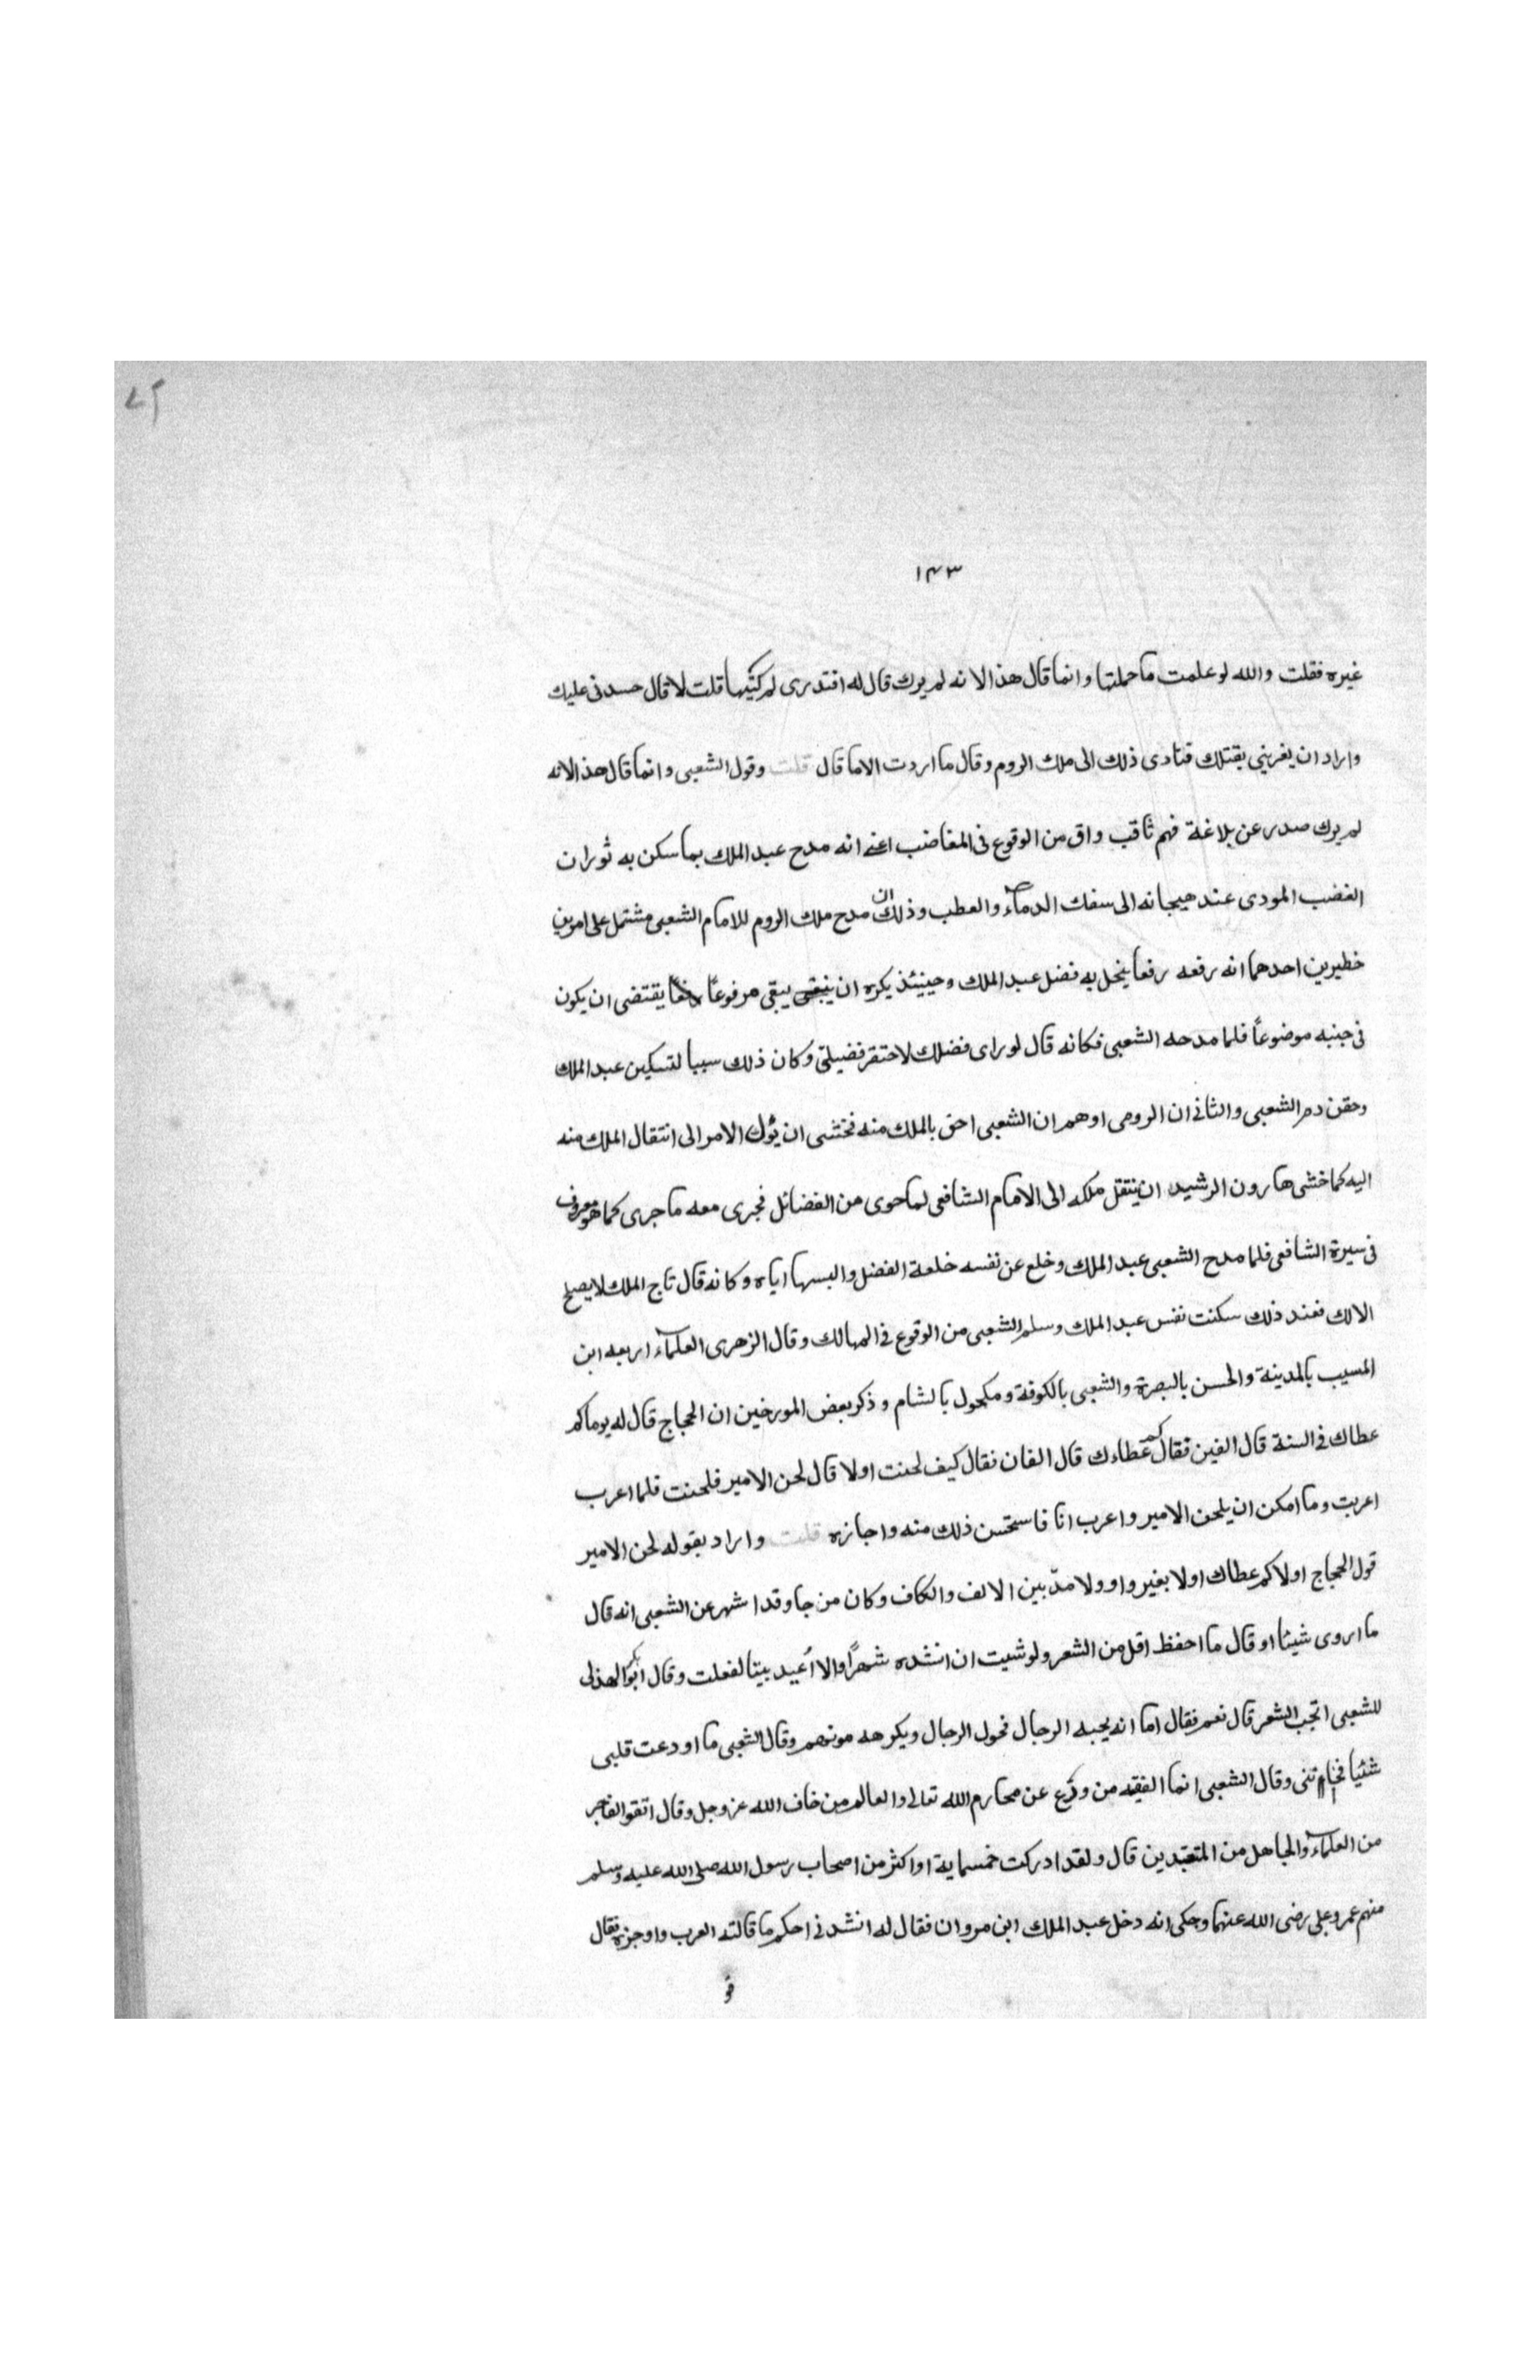 ١٤٣
غيره فقلت والله لو علمت ما حملتها وانما قال هذا لانه لم يرك قال له افتدرى لم كتبها قلت لا قال حسدنى عليك
واراد ان يغرينى بقتلك فتادى ذلك الى ملك الروم وقال ما اردت الا ما قال قلت وقول الشعبى وانما قال هذا لانه
لم يرك صدر عن بلاغة فهم ثاقب واق من الوقوع فى المغاضب اعنى انه مدح عبد الملك بما سكن به ثوران
الغضب المودى عند هيجانه الى سفك الدماء والعطب وذلك ان مدح ملك الروم للامام الشعبى مشتمل على امرين
خطيرين احدهما انه رفعه رفعا ينحل به فضل عبد الملك وحينئذ يكره ان يبقى مرفوعاً رفعاً يقتضى ان يكون
فى جنبه موضوعاً فلما مدحه الشعبى فكانه قال لو راى فضلك لاحتقر فضيلتى وكان ذلك سببا لتسكين عبد الملك
وحقن دم الشعبى والثانى ان الرومى اوهم ان الشعبى احق بالملك منه فخشى ان يؤل الامر الى انتقال الملك منه
اليه كما خشى هارون الرشيد ان ينتقل ملكه الى الامام الشافعى لما حوى من الفضائل فجرى معه ما جرى كما هو معروف
فى سيرة الشافعى فلما مدح الشعبى عبد الملك وخلع عن نفسه خلعة الفضل والبسها اياه وكانه قال تاج الملك لا يصلح
الا لك فعند ذلك سكنت نفس عبد الملك وسلم الشعبى من الوقوع فى المهالك وقال الزهرى العلماء اربعه ابن
المسيب بالمدينة والحسن بالبصرة والشعبى بالكوفة ومكحول بالشام وذكر بعض المورخين ان الحجاج قال له يوما كم
عطاك فى السنة قال الفين فقال كم عطاءك قال الفان فقال كيف لحنت اولا قال لحن الامير فلحنت فلما اعرب
اعربت وما امكن ان يلحن الامير واعرب انا فاستحسن ذلك منه واجازه قلت واراد بقوله لحن الامير
قول الحجاج اولا كم عطاك اولا بغير واو ولا مدّ بين الالف والكاف وكان مزجا وقد اشهر عن الشعبى انه قال
ما اروى شيئا او قال ما احفظ اقل من الشعر ولو شيت ان انشده شهراً والا أعيد بيتا لفعلت وقال ابو بكر الهذلى
للشعبى اتحب الشعر قال نعم فقال اما انه يحبه الرجال فحول الرجال ويكرهه مونوهم وقال الشعبى ما اودعت قلبى
شئيا فخانتنى وقال الشعبى انما الفقيه من ورع عن محارم الله تعالى والعالم من خاف الله عز وجل وقال اتقوا الفاجر
من العلماء والجاهل من المتعبدين قال ولقد ادركت خمسماية او اكثر من اصحاب رسول الله صلى الله عليه وسلم
منهم عمر وعلى رضى الله عنهما وحكى انه دخل عبد الملك ابن مروان فقال له انشدنى احكم ما قالته العرب واوجزه فقال